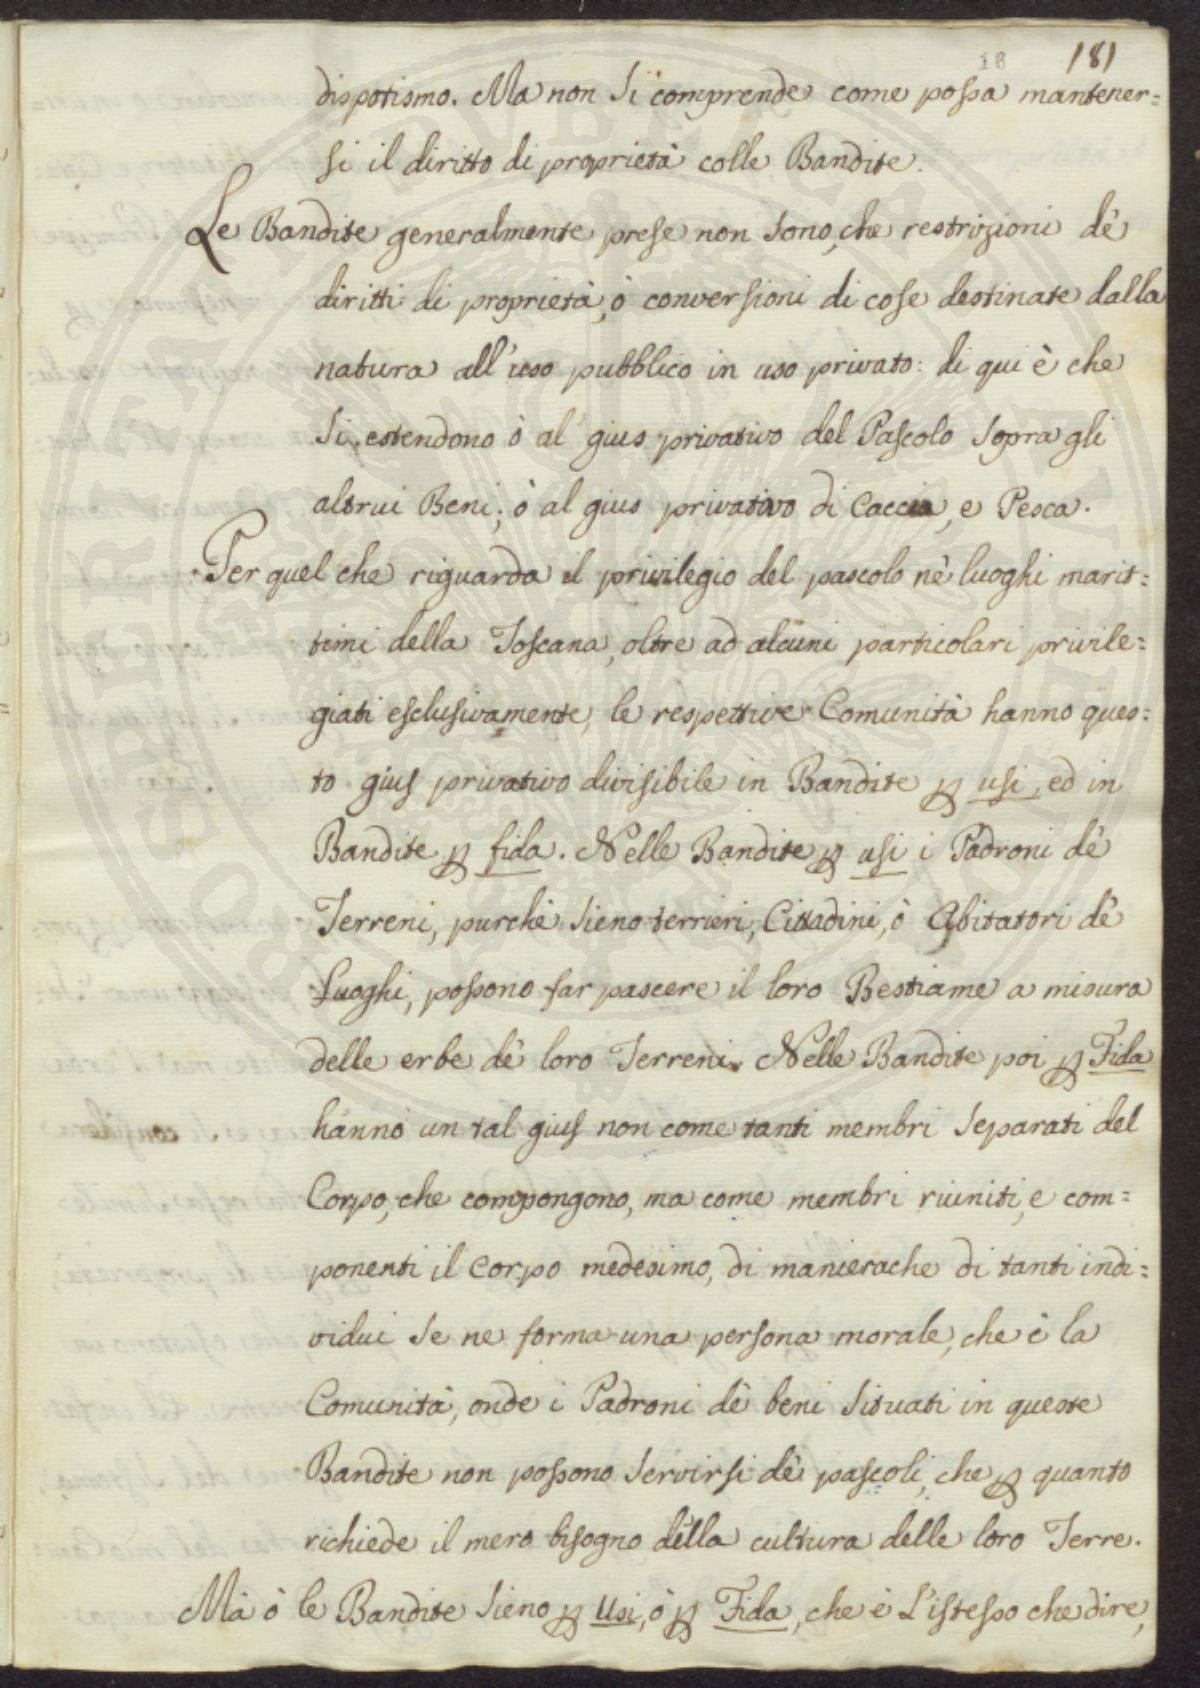 16 181
dispotismo. Ma non si comprende come possa mantener=
si il diritto di proprietà colle Bandite.
Le Bandite generalmente prese non sono, che restrizioni dè
diritti di proprietà, ò conversioni di cose destinate dalla
natura all'uso pubblico in uso privato: di qui è che
si estendono ò al gius privativo del Pascolo sopra gli
altrui Beni; ò al gius privativo di Caccia, e Pesca.
Per quel che riguarda il privilegio del pascolo nè luoghi marit=
timi della Toscana, oltre ad alcuni particolari privile=
giati esclusivamente, le respettive Comunità hanno ques=
to gius privativo divisibile in Bandite ꝑ usi, ed in
Bandite ꝑ fida. Nelle Bandite ꝑ usi i Padroni dè
Terreni, purchè sieno terrieri, Cittadini, ò Abitatori dè
Luoghi, possono far pascere il loro Bestiame a misura
delle erbe dè loro Terreni. Nelle Bandite poi ꝑ Fida
hanno un tal gius non come tanti membri separati del
Corpo, che compongono, ma come membri riuniti, e com=
ponenti il Corpo medesimo, di manierache di tanti indi=
vidui se ne forma una persona morale, che è la
Comunità, onde i Padroni dè beni situati in queste
Bandite non possono servirsi dè pascoli, che ꝑ quanto
richiede il mero bisogno della cultura delle loro Terre.
Mà ò le Bandite sieno ꝑ Usi, ò ꝑ Fida, che è l'istesso che dire,
PROSPERITAS PUBLICA